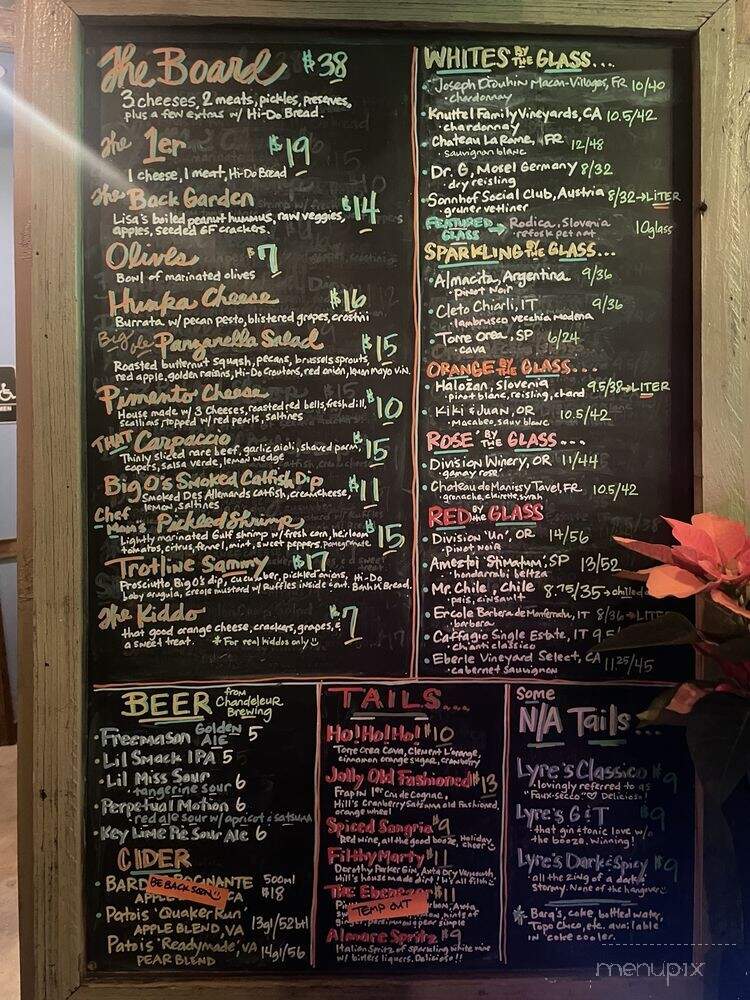 The Board $38
3 cheeses, 2 meats, pickles, preserves,
plus a few extras w/ Hi-Do Bread.
the 1er $19
1 cheese, 1 meat, Hi-Do Bread
the Back Garden $14
Lisa's boiled peanut hummus, raw veggies,
apples, seeded GF crackers.
Olives $7
Bowl of marinated olives
Hunka Cheese $16
Burrata w/ pecan pesto, blistered grapes, crostini
Big ole Panzanella Salad $15
Roasted butternut squash, pecans, brussels sprouts,
red apple, golden raisins, Hi-Do croutons, red onion, kuun mayo vin.
Pimento Cheese $10
House made w/ 3 Cheeses, roasted red bells, fresh dill,
scallions, topped w/ red pearls, saltines
THAT Carpaccio $15
Thinly sliced rare beef, garlic aioli, shaved parm,
capers, salsa verde, lemon wedge
Big O's Smoked Catfish Dip $11
Smoked Des Allemands catfish, creamcheese,
lemon, saltines
Chef Man's Pickled Shrimp $15
Lightly marinated Gulf shrimp w/ fresh corn, heirloom
tomatoes, citrus, fennel, mint, sweet peppers, pomegranate
Trotline Sammy $17
Prosciutto, Big O's dip, cucumber, pickled onions, Hi-Do
baby arugula, creole mustard w/ Ruffles inside out. Banh Mi Bread.
the Kiddo $7
that good orange cheese, crackers, grapes, &
a sweet treat. *For real kiddos only
WHITES BY THE GLASS...
• Joseph Drouhin Macon-Villages, FR 10/40
• chardonnay
• Knuttel Family Vineyards, CA 10.5/42
• chardonnay
• Chateau La Rame, FR 12/48
• sauvignon blanc
• Dr. G, Mosel Germany 8/32
• dry reisling
• Sonnhof Social Club, Austria 8/32 → LiTER
• gruner vetliner
FEATURED GLASS → Rodica, Slovenia 10 glass
• refosk pet nat
SPARKLING BY THE GLASS...
• Almacita, Argentina 9/36
• pinot noir
• Cleto Chiarli, IT 9/36
• lambrusco vecchia modena
• Torre Orea, SP 6/24
• cava
ORANGE BY THE GLASS...
• Haložan, Slovenia 9.5/38 → LiTER
• pinot blanc, reisling, chard
• Kiki & Juan, OR 10.5/42
• Macabeo, sauv blanc
ROSE' BY THE GLASS...
• Division Winery, OR 11/44
• gamay rosé
• Chateau de Manissy Tavel, FR 10.5/42
• grenache, clairette, syrah
RED BY the GLASS
• Division 'Un', OR 14/56
• pinot noir
• Ameztoi 'Stimatum', SP 13/52
• hondarrabi beltza
• Mr. Chile, Chile 8.75/35 → chilled
• pais, cinsault
• Ercole Barbera de Monferrato, IT 8/36 → LITE
• barbera
• Caffagio Single Estate, IT 9.5
• chianti classico
• Eberle Vineyard Select, CA 11.25/45
• cabernet sauvignon
BEER from Chandeleur Brewing
• Freemason Golden Ale 5
• Lil Smack IPA 5
• Lil Miss Sour 6
• tangerine sour
• Perpetual Motion 6
• red ale sour w/ apricot & satsuma
• Key Lime Pie Sour Ale 6
CIDER
BARD CINANTE 500ml
BE BACK SOON
APPLE CA $18
• Patois 'Quaker Run' 13gl/52btl
APPLE BLEND, VA
• Patois 'Readymade', VA 14gl/56
PEAR BLEND
TAILS...
Ho! Ho! Ho! $10
Torre Orea Cava, Clement L'orange,
cinnamon orange sugar, cranberry
Jolly Old Fashioned $13
Frapin 1er Cru de Cognac,
Hill's Cranberry Satsuma old Fashioned,
orange wheel
Spiced Sangria $9
Red wine, all the good booze, Holiday cheer
Filthy Marty $11
Dorothy Parker Gin, Auta Dry Vermouth,
Will's house made dirt! It's all filth
The Ebenezer $11
TEMP OUT
ginger, persimmon pear simple
Almare Spritz $9
Italian Spritz of sparkling white wine
w/ bitters liquers. Delicioso!!
Some
N/A Tails...
Lyre's Classico $9
• lovingly referred to as
"Faux-secco." Delicioso!
Lyre's G & T $9
• that gin & tonic love w/o
the booze. Winning!
Lyre's Dark & Spicy $9
• all the zing of a dark &
stormy. None of the hangover
* Barq's, coke, bottled water,
Topo Chico, etc. available
in 'coke cooler.
menupix